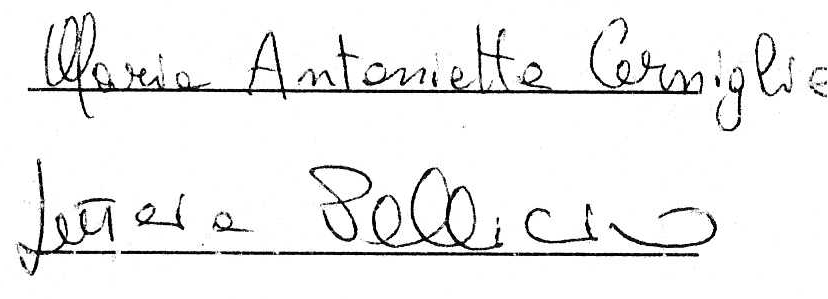 Maria Antonietta Cerniglia
Letteria Pellicino